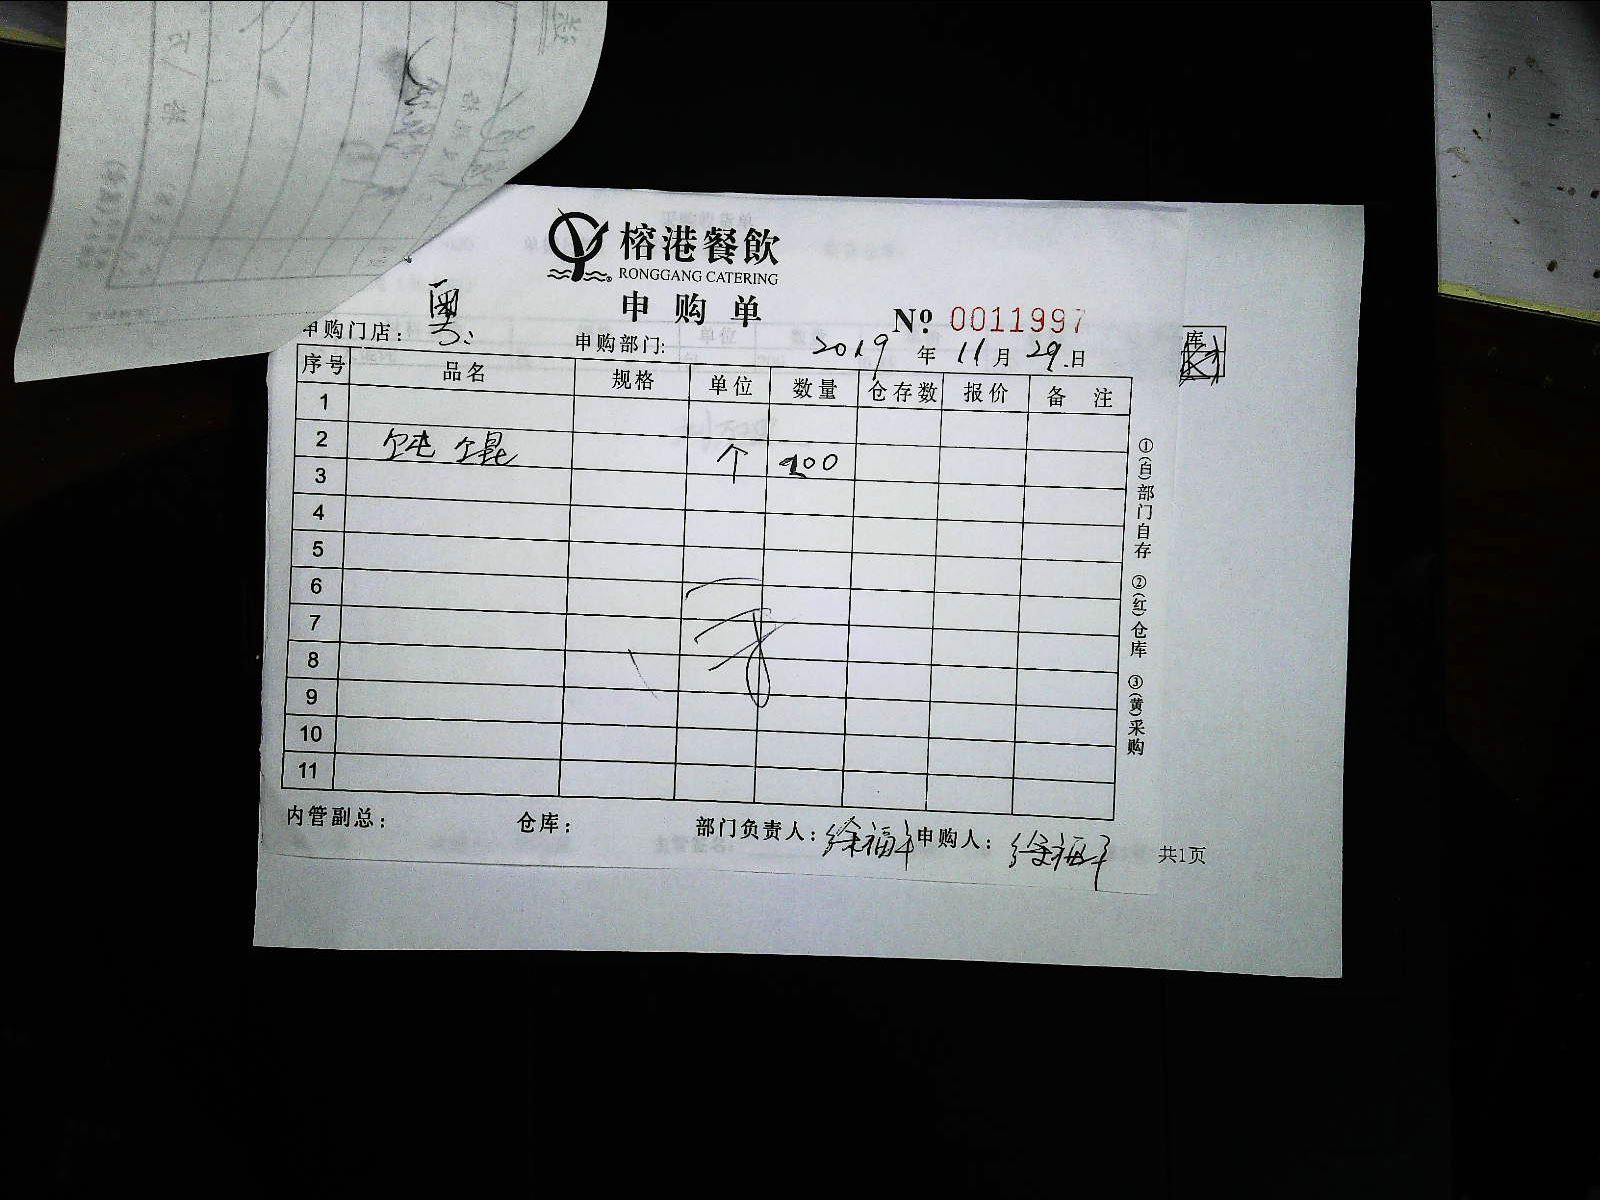 榕港餐飲
RONGGANG CATERING
申购单
№ 0011997
申购门店：
申购部门: 2019 年 11 月 29 日
序号 品名 规格 单位 数量 仓存数 报价 备 注
1
2 馄 个
3
4
5
6
7
8
9
10
11
①(白)部门自存 ②(红)仓库 ③(黄)采购
内管副总： 仓库： 部门负责人：徐福平 申购人：徐福平
共1页
库